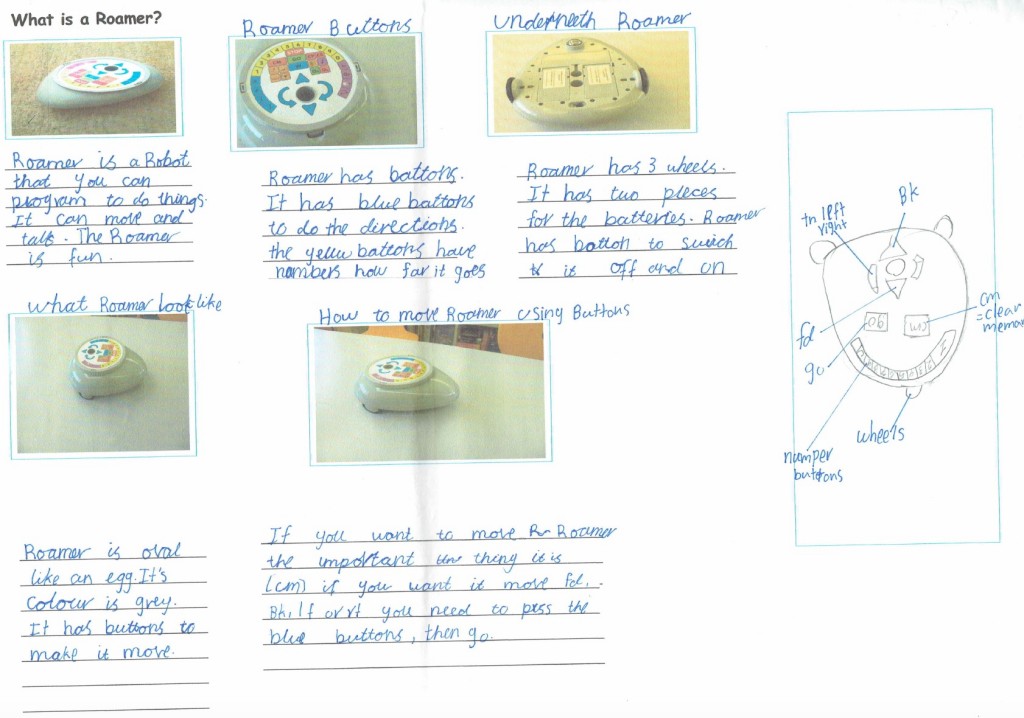 What is a Roamer?
Roamer is a Robot
that you can
program to do things.
It can move and
talk. The Roamer
is fun.
Roamer Buttons
Roamer has battons.
It has blue battons
to do the directions.
the yellw battons have
nambers how far it goes
Underneeth Roamer
Roamer has 3 wheels.
It has two pleces
for the batteries. Roamer
has batton to swich
it off and on
what Roamer look like
Roamer is oval
like an egg. It's
colour is grey.
It has buttons to
make it move.
How to move Roamer using Buttons
If you want to move Roamer
the important thing it is
(cm) if you want it move fd,
Bk, lf or rt you need to press the
blue buttons, then go.
Bk
tn left
right
cm
= clear
fd
go
go
cm
wheels
numper
buttons